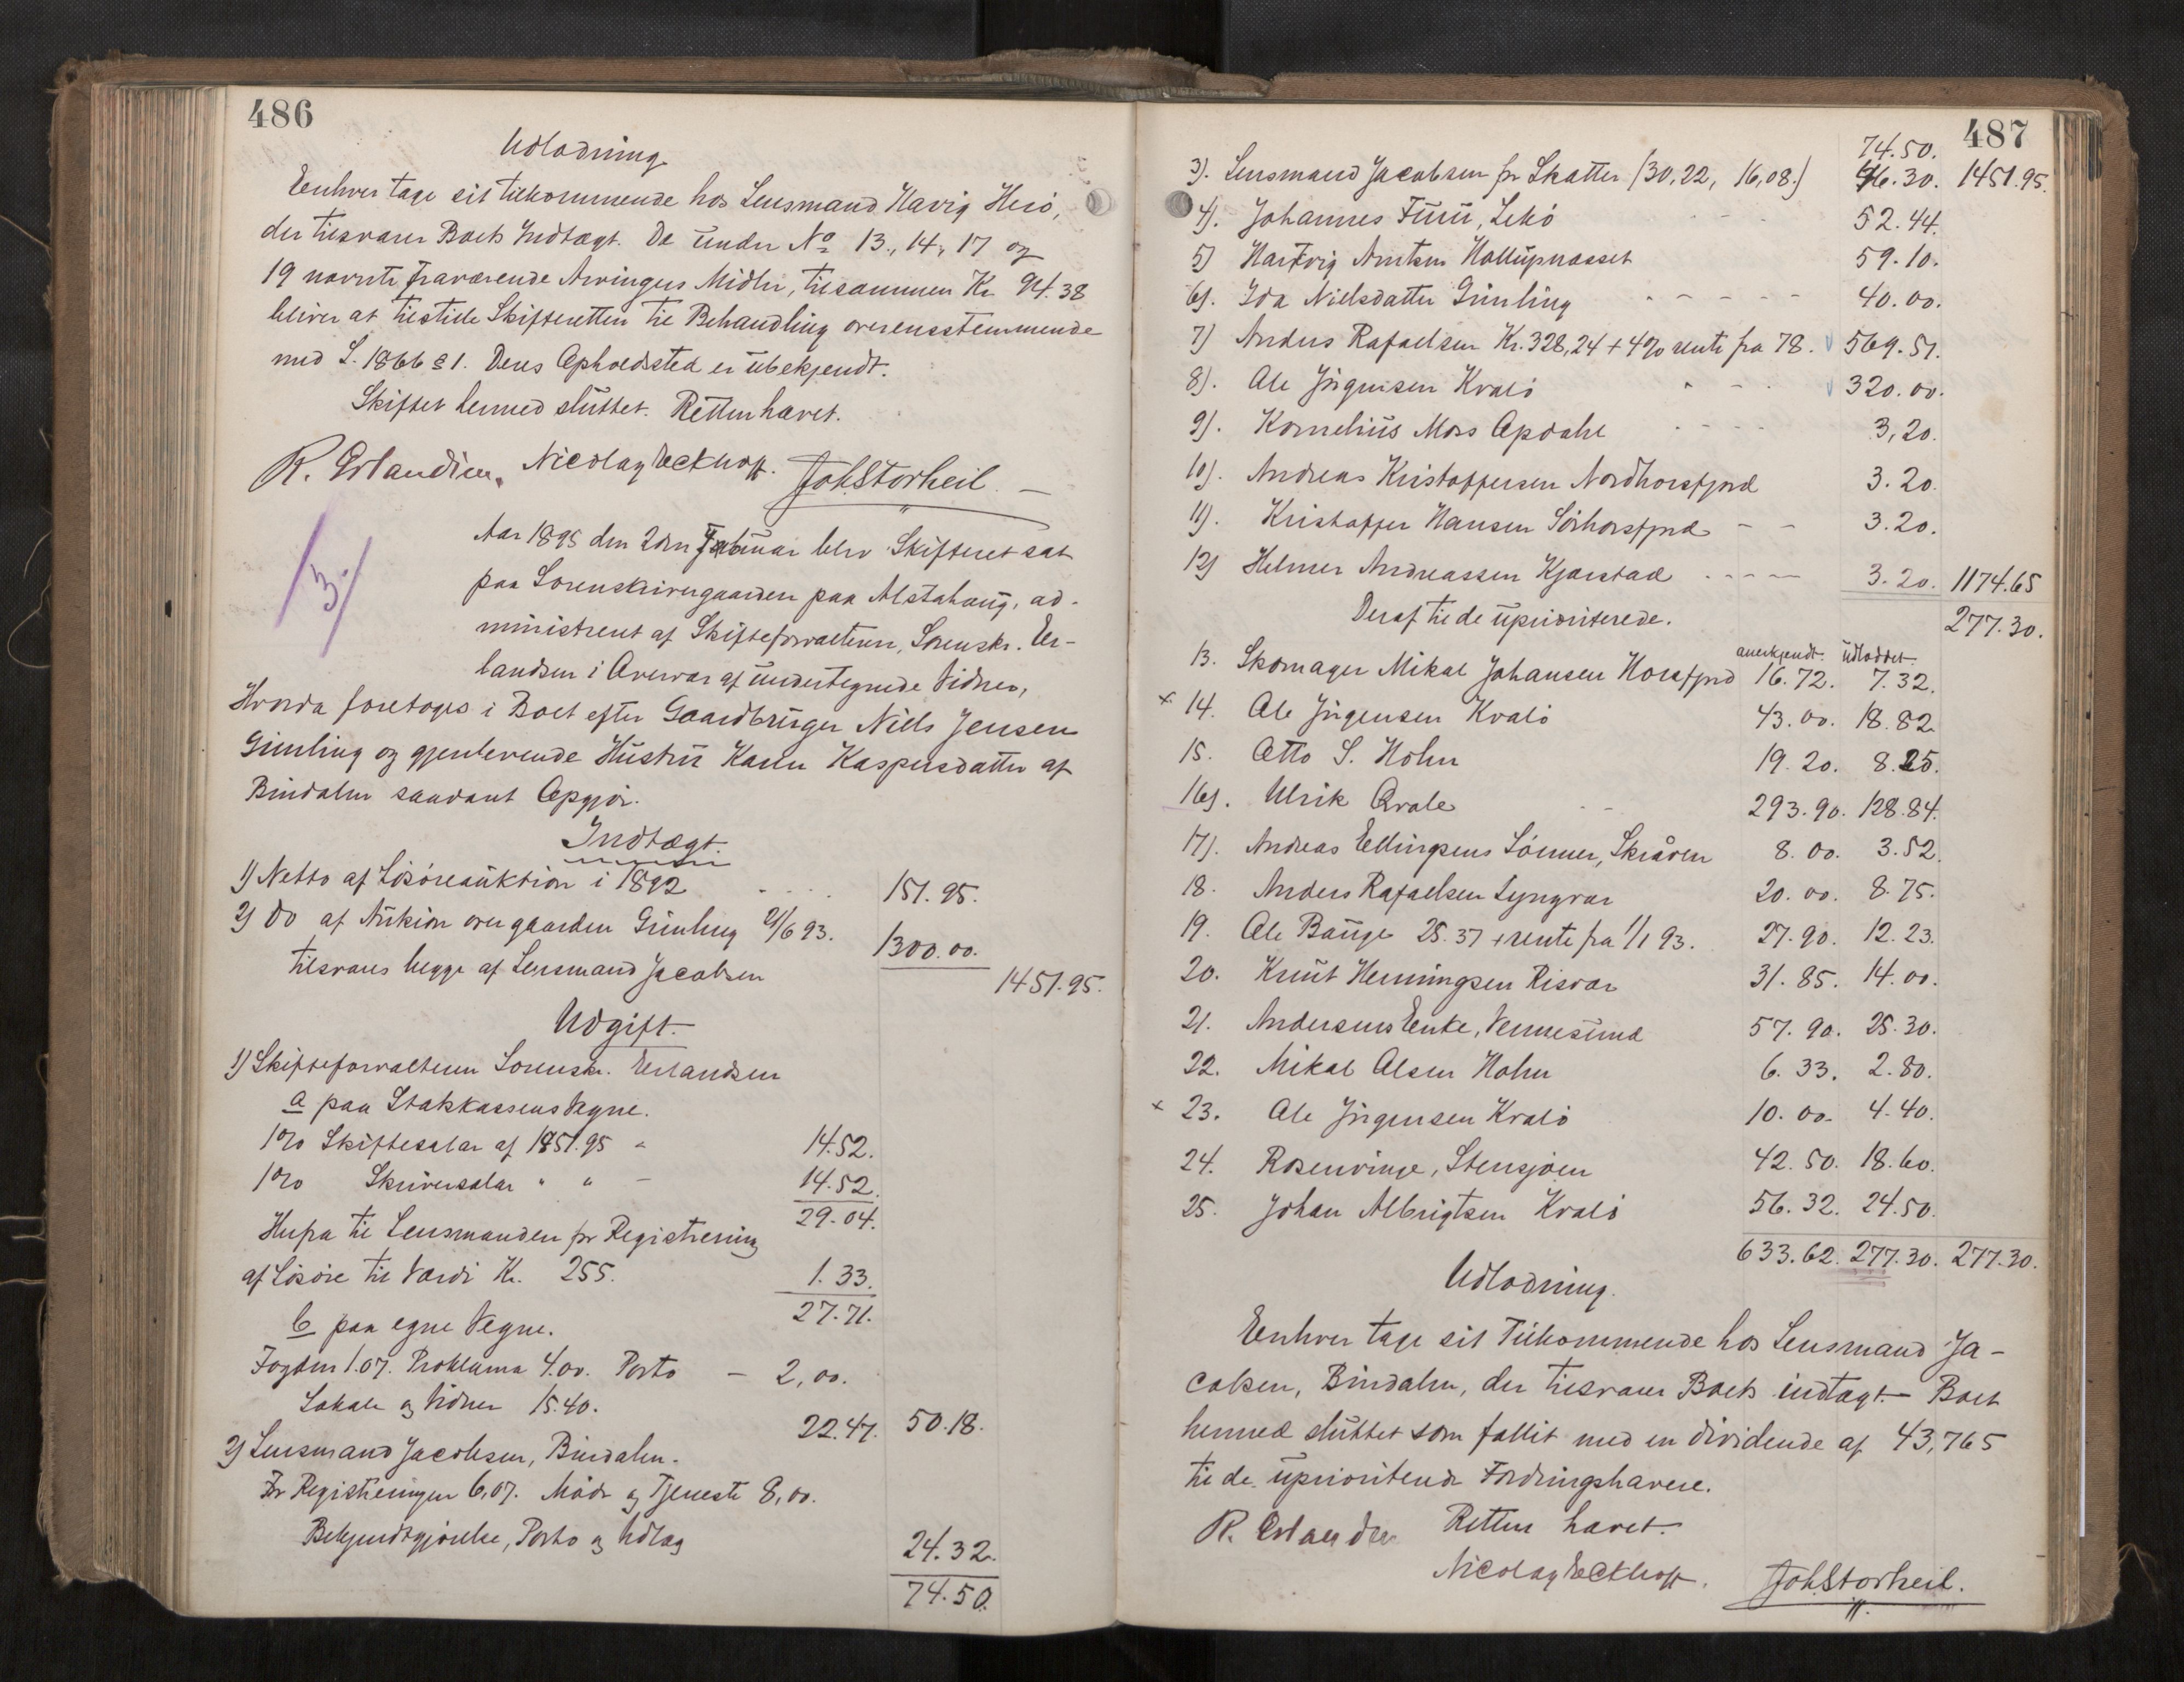 486
Udlodning
Eenhver tage sit tilkommende hos Lensmand Havig Herö,
der tilsvarer Boets Indtægt. De under No 13, 14, 17 og
19 nævnte fraværende Arvingers Midler, tilsammen Kr 94.38
bliver at tilstille Skifteretten til Behandling overensstemmende
med L. 1866 § 1. Deres Opholdsted er ubekjendt.
Skiftet hermed sluttet. Retten hævet.
R. Erlandsen. Nicolay Eckhoff. Joh. Storheil
3/
Aar 1895 den 2den Februar blev Skifteret sat
paa Sorenskrivergaarden paa Alstahaug, ad-
ministreret af Skifteforvalteren, Sorenskr. Er-
landsen i Overvær af undertegnede Vidner,
Hvorda foretoges i Boet efter Gaardbruger Niels Jensen
Gimling og gjenlevende Hustru Karen Kaspersdatter af
Bindalen saadant Opgjör.
Indtægt.
1) Netto af Lösöreauktion i 1892 .... 151.95.
2) Do af Auktion over gaarden Gimling 21/6 93. 1300.00.
tilsvares begge af Lensmand Jacobsen 1451.95.
Udgift.
1) Skifteforvalteren Sorenskr. Erlandsen
a paa Statskassens Vegne.
1% Skiftesalær af 1451.95 " 14.52.
1% Skriversalær " " - 14.52.
29.04.
Herfra til Lensmanden for Registrering
af Lösöre til Værdi Kr. 255. 1.33.
27.71.
b paa egne Vegne.
Fogden 1.07. Proklama 4.00. Porto - 2,00.
Lokale og Vidner 15.40. 22.47. 50.18.
2) Lensmand Jacobsen, Bindalen.
For Registreringen 6,07. Möde og Tjeneste 8,00.
Bekjendtgjörelse, Porto og Udlæg 24.32.
74.50.
487
74.50.
3). Lensmand Jacobsen for Skatter (30,22, 16,08.) 46.30. 1451.95.
4). Johannes Furu, Lekö - - - 52.44.
5) Hartvig Arntsen Hallupnæsset 59.10.
6). Ida Nielsdatter Gimling - - - - - 40.00.
7) Anders Rafaelsen Kr. 328,24 + 4% rente fra 78. 569.51.
8). Ole Jörgensen Kvalö - - - 320.00.
9). Kornelius Moss Opdahl - - - - 3,20.
10). Andreas Kristoffersen Nordhorsfjord 3.20.
11). Kristoffer Hansen Sörhorsfjord - - 3.20.
12) Helmer Andreassen Kjærstad - - - - 3.20. 1174.65
Deraf til de uprioriterede. 277.30.
anerkjendt. udloddet.
13. Skomager Mikal Johansen Horsfjord 16.72. 7.32.
x 14. Ole Jörgensen Kvalö 43.00. 18.82
15. Otto S. Holm 19.20. 8.25.
16). Ulrik Qvale - - 293.90. 128.84.
17). Andreas Ellingsens Sönner, Skråven 8.00. 3.52.
18. Anders Rafaelsen Lyngvær 20.00. 8.75.
19. Ole Bauge 25.37 + rente fra 1/1 93. 27.90. 12.23.
20. Knut Henningsen Risvær 31.85. 14.00.
21. Andersens Enke, Vennesund 57.90. 25.30.
22. Mikal Olsen Holm 6.33. 2.80.
x 23. Ole Jörgensen Kvalö 10.00. 4.40.
24. Rosenvinge, Stensjöen 42.50. 18.60.
25. Johan Albrigtsen Kvalö 56.32. 24.50.
633.62. 277.30. 277.30.
Udlodning.
Eenhver tage sit Tilkommende hos Lensmand Ja-
cobsen, Bindalen, der tilsvarer Boets indtægt. - Boet
hermed sluttet som fallit med en dividende af 43,765
til de uprioriterede Fordringshavere.
Retten hævet.
R. Erlandsen
Nicolay Eckhoff. Joh. Storheil.